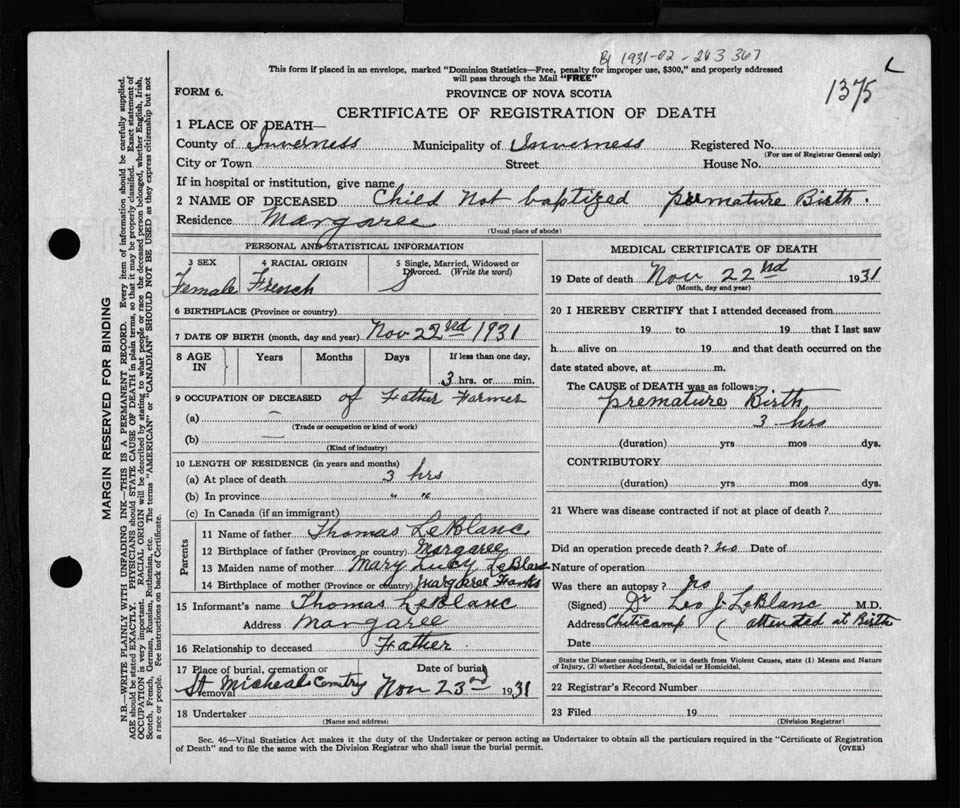 B 1931-02-243367
This form if placed in an envelope, marked "Dominion Statistics—Free, penalty for improper use, $300," and properly addressed
will pass through the Mail "FREE"
1375
FORM 6.
PROVINCE OF NOVA SCOTIA
CERTIFICATE OF REGISTRATION OF DEATH
1 PLACE OF DEATH—
County of Inverness Municipality of Inverness Registered No.
(For use of Registrar General only)
City or Town Street House No.
If in hospital or institution, give name
2 NAME OF DECEASED Child Not baptized premature Birth.
Residence Margaree
(Usual place of abode)
PERSONAL AND STATISTICAL INFORMATION
3 SEX 4 RACIAL ORIGIN 5 Single, Married, Widowed or
Divorced. (Write the word)
Female French S
6 BIRTHPLACE (Province or country)
7 DATE OF BIRTH (month, day and year) Nov 22nd 1931
8 AGE IN Years Months Days If less than one day,
3 hrs. or min.
9 OCCUPATION OF DECEASED of Father Farmer
(a) —
(Trade or occupation or kind of work)
(b) —
(Kind of industry)
10 LENGTH OF RESIDENCE (in years and months)
(a) At place of death 3 hrs
(b) In province " "
(c) In Canada (if an immigrant)
Parents
11 Name of father Thomas LeBlanc
12 Birthplace of father (Province or country) Margaree
13 Maiden name of mother Mary Lucy LeBlanc
14 Birthplace of mother (Province or country) Margaree Forks
15 Informant's name Thomas LeBlanc
Address Margaree
16 Relationship to deceased Father
17 Place of burial, cremation or Date of burial
removal St Micheals Cemtry Nov 23rd 1931
18 Undertaker
(Name and address)
MEDICAL CERTIFICATE OF DEATH
19 Date of death Nov 22nd 1931
(Month, day and year)
20 I HEREBY CERTIFY that I attended deceased from
19 to 19 that I last saw
h alive on 19 and that death occurred on the
date stated above, at m.
The CAUSE of DEATH was as follows:
premature Birth
3 hrs
(duration) yrs mos dys.
CONTRIBUTORY
(duration) yrs mos dys.
21 Where was disease contracted if not at place of death?
Did an operation precede death? no Date of
Nature of operation
Was there an autopsy? no
(Signed) Dr Leo J. LeBlanc M.D.
Address Cheticamp (attended at Birth
Date
State the Disease causing Death, or in death from Violent Causes, state (1) Means and Nature
of Injury, (2) whether Accidental, Suicidal or Homicidal.
22 Registrar's Record Number
23 Filed 19
(Division Registrar)
Sec. 46—Vital Statistics Act makes it the duty of the Undertaker or person acting as Undertaker to obtain all the particulars required in the "Certificate of Registration
of Death" and to file the same with the Division Registrar who shall issue the burial permit.
(OVER)
MARGIN RESERVED FOR BINDING
N.B.—WRITE PLAINLY WITH UNFADING INK—THIS IS A PERMANENT RECORD. Every item of information should be carefully supplied.
AGE should be stated EXACTLY. PHYSICIANS should STATE CAUSE OF DEATH in plain terms, so that it may be properly classified. Exact statement of
OCCUPATION is very important. RACIAL ORIGIN will be described by stating to what people or race the deceased person belonged, whether English, Irish,
Scotch, French, German, Russian, Ruthenian, etc. The terms "AMERICAN" or "CANADIAN" SHOULD NOT BE USED as they express citizenship but not
a race or people. Fee instructions on back of Certificate.